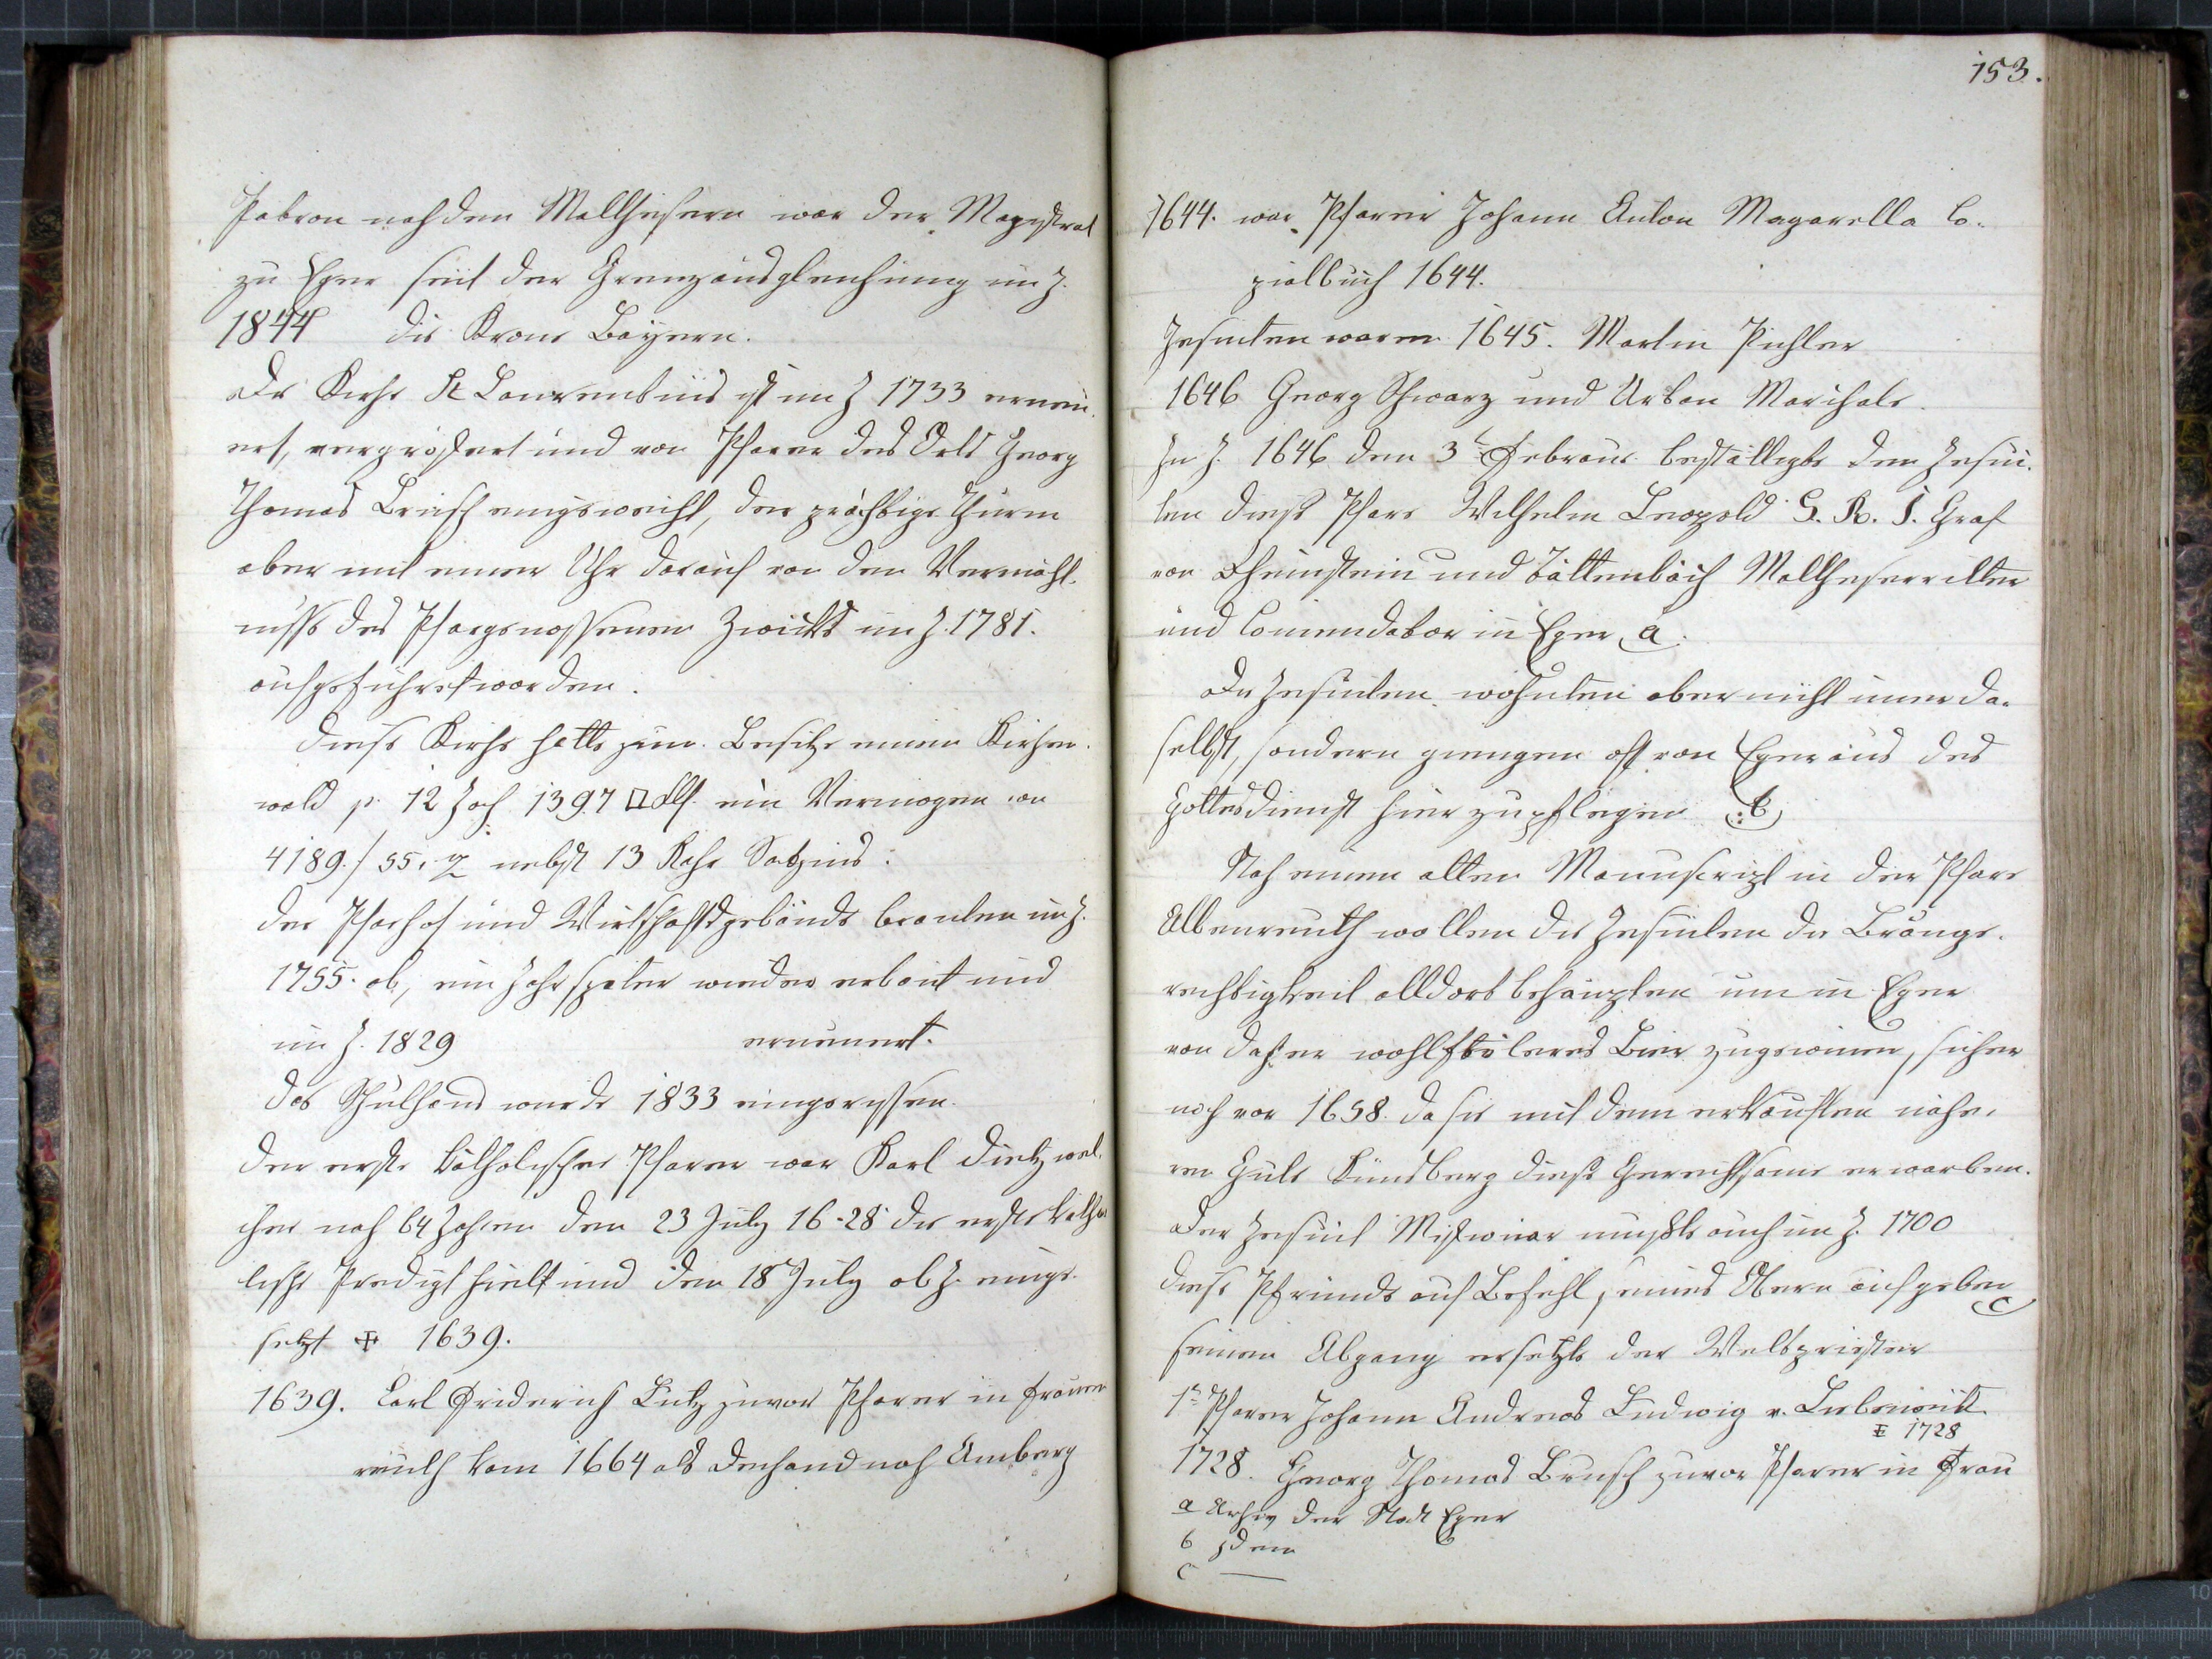 Patron nach den Maltheſern war der Magiſtrat
zu Eger ſeit der Grenzausgleichung im J.
1844 die Krone Bayern.
Die Kirche St Laurentius iſt im J 1733 erneu-
ert, vergröſsert und von Pfarer des Orts Georg
Thomas Bruſch eingeweiht, der prächtige Thurm
aber mit einer Uhr darauf von dem Vermächt-
niſse des Pfargenoſsenen Zwickt im J. 1781.
aufgeführt worden.
Dieſe Kirche hatte zum Beſitze einen Kirchen-
wald p. 12 Joch 1397 □Klf. ein Vermögen von
4189 f 55. x nebſt 13 Kahr Satzins.
Der Pfarhof und Wirthſchaftsgebäude branten im J.
1755. ab, ein Jahr ſpäter wieder erbaut und
im J. 1829 erneuert.
Das Schulhaus wurde 1833 eingeriſsen.
Der erſte katholiſche Pfarer war Karl Dietz wel-
cher nach 64 Jahren den 23 July 16-28 die erſte katho
liſche Predigt hielt und den 18 July ob J. einge-
ſetzt ‡ 1639.
1639. Carl Friderich Lutz zuvor Pfarer in Frauen
reuth kam 1664 als Dechand nach Amberg
153.
1644. war Pfarer Johann Anton Magarella Co-
pialbuch 1644.
Jeſuiten waren 1645. Martin Pichler
1646 Georg Schwarz und Urban Marchale.
Im J. 1646 den 3t Februar beſtättigte den Jeſui-
ten dieſe Pfare Wilhelm Leopold S. R. I. Graf
von Rheinſtein und Tättenbach Maltheſerritter
und Comendator in Eger a.
Die Jeſuiten wohnten aber nicht imer da-
ſelbſt, ſondern giengen oft von Eger aus des
Gottesdienſt hier zu pflegen b
Nach einem alten Manuscript in der Pfare
Albenreuth wollten die Jeſuiten die Bräuge-
rechtigkeit alldort behaupten um in Eger
von daher wohlfeileres Bier zu gewinen, ſicher
noch vor 1658. da ſie mit dem erkauften nähe-
ren Gute Kinsberg dieſe Gerechtſame erwarben.
Der Jeſuit Miſsionar muſste auch im J. 1700
dieſe Pfründe auf Befehl ſeines Obern aufgeben c
ſeinen Abgang erſetzte der Weltprieſter
1r Pfarer Johann Andreas Ludwig v. Liebeneidt.
‡ 1728
1728. Georg Thomas Bruſch zuvor Pfarer in Frau
a Archiv der Stadt Eger
b jdem
c —